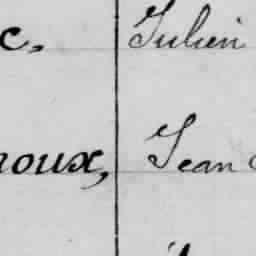 c, Julien
roux, Jean